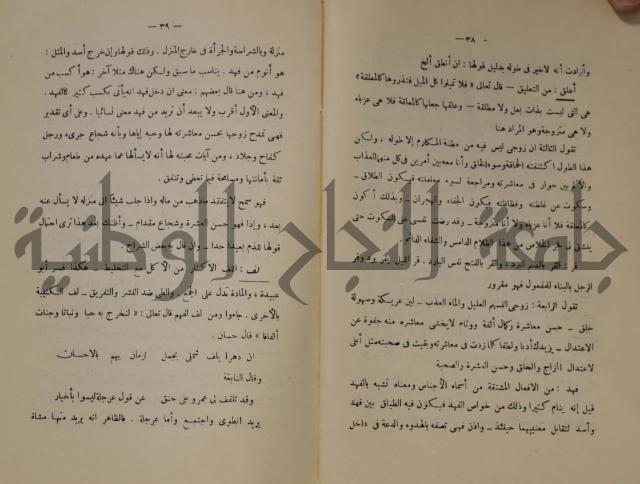 — ٣٨ —
وأرادت أنه لاخير فى طوله بدليل قولها : ان أنطق ألخ
أعلق : من التعليق — قال تعالى « فلا تميلوا كل الميل فتذروها كالمعلقة »
هى التى ليست بذات بعل ولا مطلقة — وعلقها جعلها كالمعلقة فلا هى عزباء
ولا هى متزوجة وهو المراد هنا
تقول الثالثة ان زوجى ليس فيه من مظنة المكارم إلا طوله ، ولكن
هذا الطول اكتنفته الحماقة وسوء الخلق وأنا معه بين أمرين فى كل منهما العذاب
والألم بين حوار فى معاشرته ومراجعة لسوء معاملته فيكون الطلاق —
وسكوت عن غلظته وفظاظته فيكون الجفاء والهجران — وبذلك أكون
كالمعلقة فلا أنا عزباء ولا أنا متزوجة — وقد رضت نفسى على السكوت حتى
الخلاص من هذا الظلام الدامس والشقاء الدائم
قر : القر بالضم البرد ، والقر بالفتح نفس البارد . قر الليل
الرجل بالبناء للمفعول فهو مقرور
تقول الرابعة : زوجى النسيم العليل والماء العذب — لين عريكة وسهولة
خلق — حسن معاشرة وكمال ألفة ووئام لايخشى معاشره منه جفوة عن
الاعتدال — يزيدك أدبا ولطفا كلما زدت فى معاشرته وبقيت فى صحبته مثل أعلى
لاعتدال المزاج والخلق وحسن العشرة والصحبة
فهد : من الافعال المشتقة من أسماء الأجناس ومعناه تشبه بالفهد
قيل إنه ينام كثيرا وذلك من خواص الفهد فيكون فيه الطباق بين فهد
وأسد لتقابل معنييهما حينئذ — واذن فهى تصفه بالهدوء والدعة فى داخل
— ٣٩ —
منزله وبالشراسة والجرأة فى خارج المنزل . وذلك قولها وإن خرج أسد والمثل :
هو أنوم من فهد . يناسب ما سبق ولكن هناك مثلا آخر : هو أكسب من
فهد ، ومن هنا قال بعضهم : معنى ان دخل فهد انه يأتى بكسب كثير كالفهد .
والمعنى الأول أقرب ولا يبعد أن تريد من فهد معنى نسائيا . وعلى أى تقدير
فهى تمدح زوجها بحسن معاشرته لها وحبه إياها وبأنه شجاع جرىء ورجل
كفاح وجلاد ، ومن آيات محبته لها أنه لا يسألها عما عهده من طعام وشراب
ثقة بأمانتها ومسامحة فيما تعطى وتنفق .
فهو سمح لا تفتقد ماذهب من ماله واذا جلب شيئا الى منزله لا يسأل عنه
بعد ، واذا فهو حسن العشرة وشجاع مقدام — وأظنك بعد هذا ترى احتمال
قولها للذم بعيدا جدا — وان قال به بعض الشراح .
لف : اللف الاكثار من الأكل مع التخليط — هكذا فسر أبو
عبيدة ، والمادة تدل على الجمع والطى ضد النشر والتفريق — لف الكتيبة
بالأخرى . جاءوا ومن لف لفهم قال تعالى : « لنخرج به حبا ونباتا وجنات
ألفافا » قال حسان .
ان دهرا يلف شملى بجمل لزمان يهم بالاحسان
وقال النابغة
وقد تلفف لى عمرو على حنق عن قول عرجلة ليسوا بأخيار
يريد انطوى واجتمع وأما عرجلة . فالظاهر انه يريد منها مشاة
جامعة النجاح الوطنية